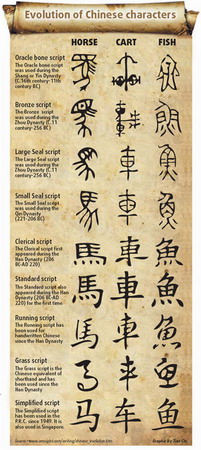 Evolution of Chinese characters
HORSE CART FISH
Oracle bone script
The Oracle bone script
was used during the
Shang or Yin Dynasty
(C.16th century-11th
century BC)
Bronze script
The Bronze script
was used during the
Zhou Dynasty (C.11
century-256 BC)
Large Seal script
The Large Seal script
was used during the
Zhou Dynasty (C.11
century-256 BC)
Small Seal script
The Small Seal script
was used during the
Qin Dynasty
(221-206 BC)
車
Clerical script
The Clerical script first
appeared during the
Han Dynasty (206
BC-AD 220)
馬 車 魚
Standard script
The Standard script also
appeared during the Han
Dynasty (206 BC-AD
220) for the first time
馬 車 魚
Running script
The Running script has
been used for
handwritten Chinese
since the Han Dynasty
馬 車 魚
Grass script
The Grass script is the
Chinese equivalent of
shorthand and has
been used since the
Han Dynasty
Simplified script
The Simplified script
has been used in the
P.R.C. since 1949. It is
also used in Singapore.
马 车 鱼